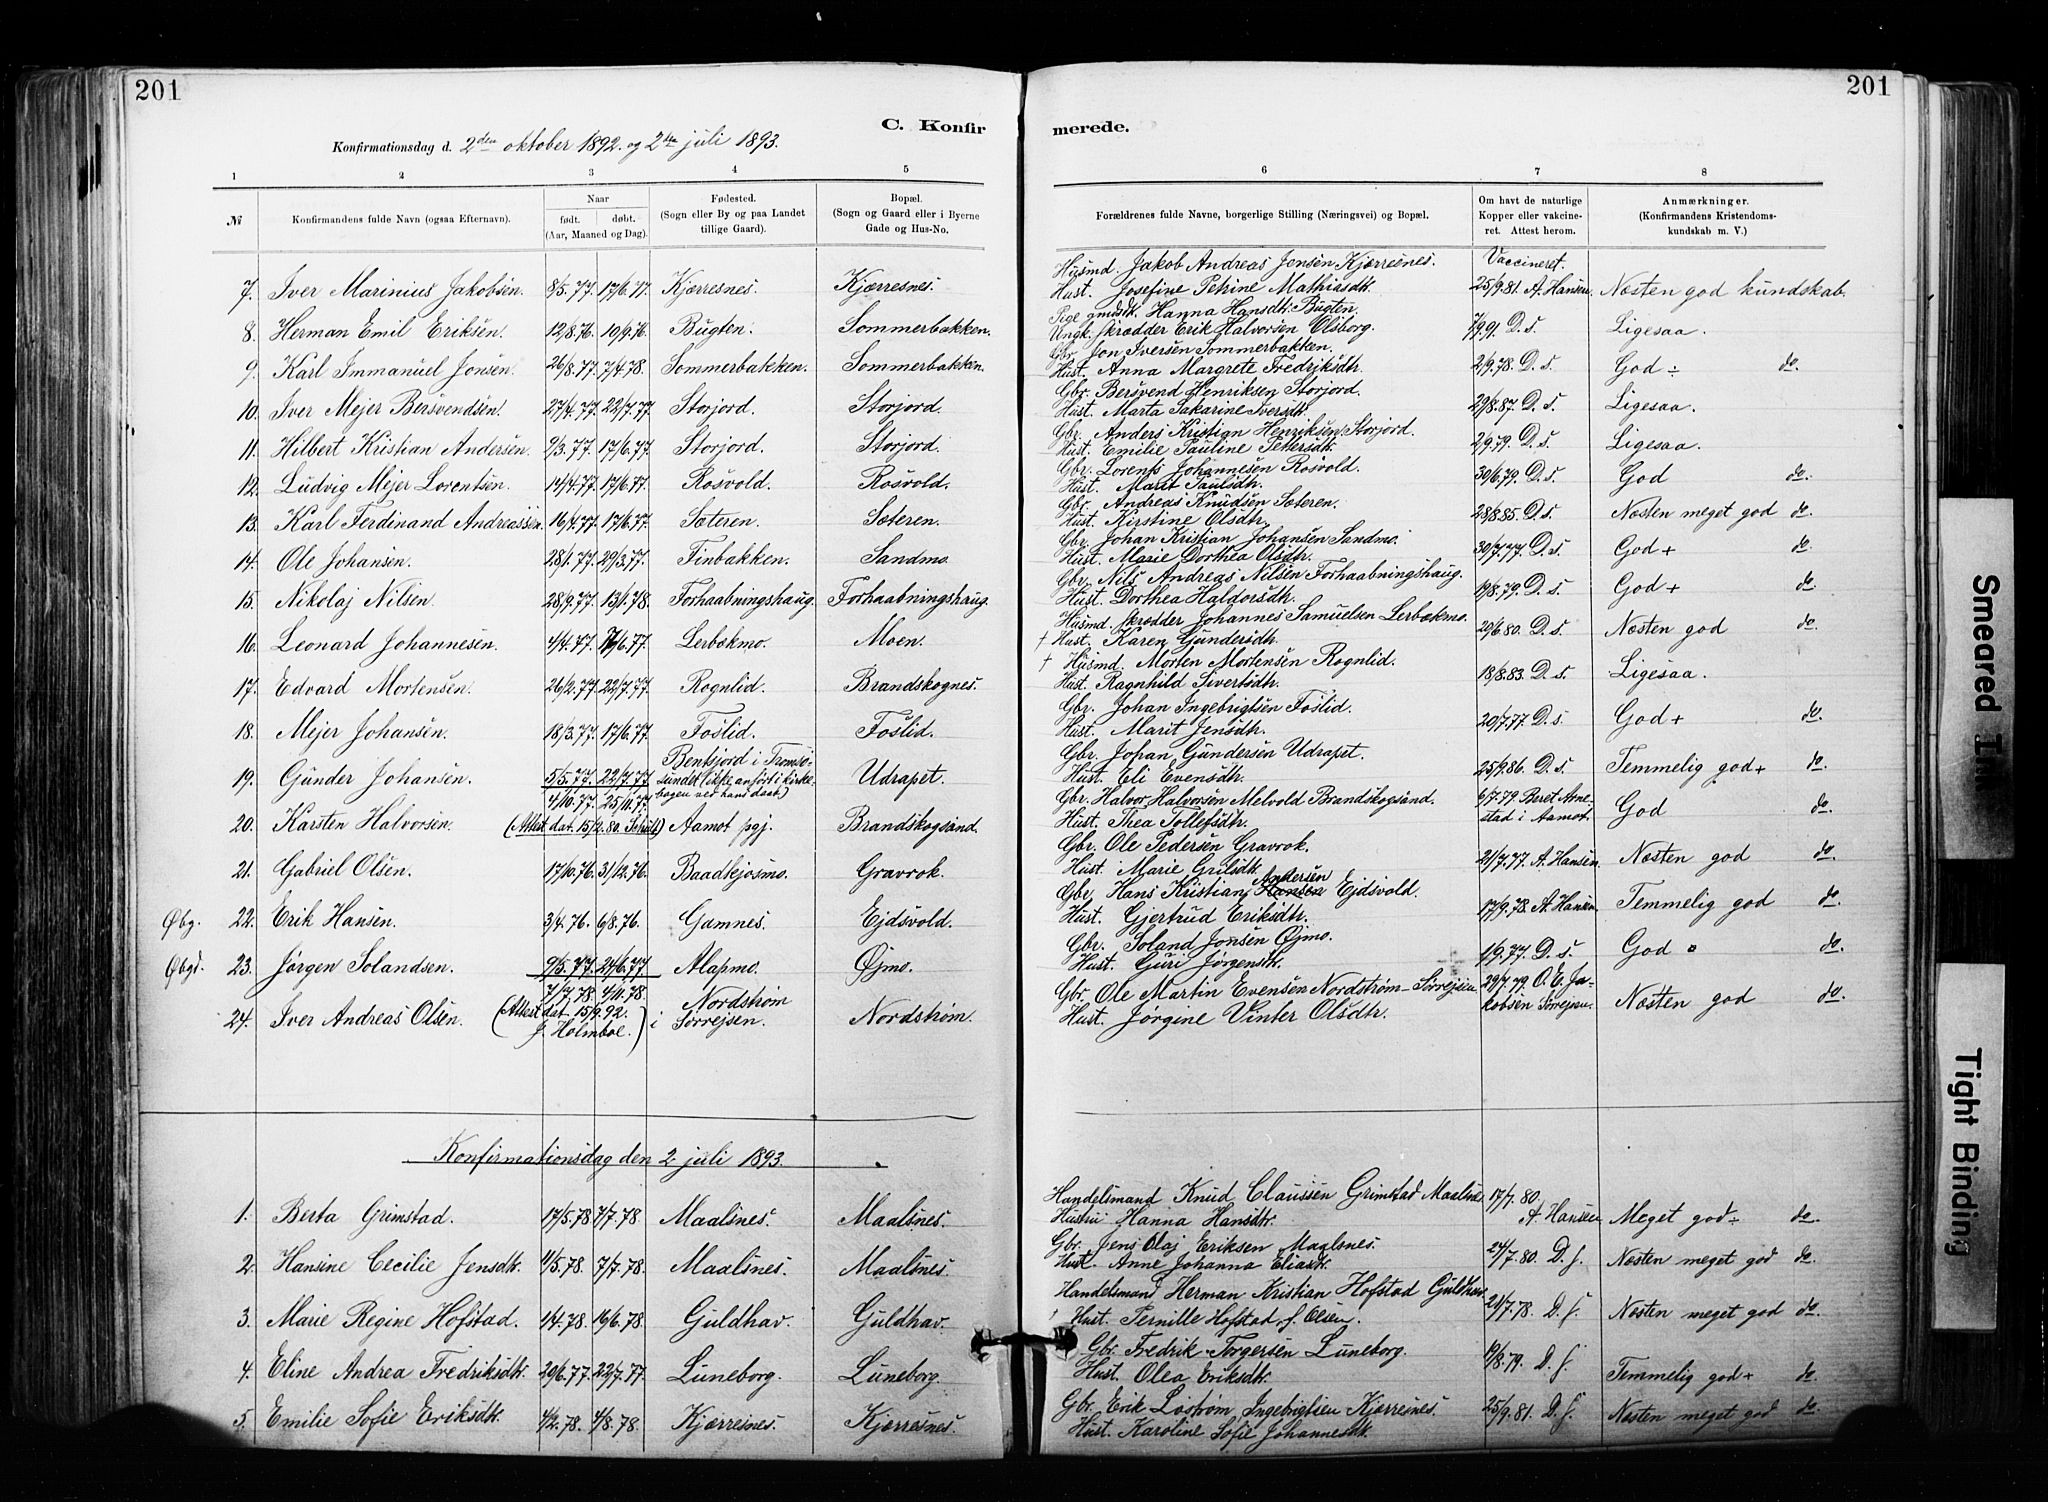 201
C. Konfir
Konfirmationsdag d. 2den oktober 1892. og 2den juli 1893.
1 2 3 4 5
№ Konfirmandens fulde Navn (ogsaa Efternavn). Naar født. døbt. (Aar, Maaned og Dag). Fødested. (Sogn eller By og paa Landet tillige Gaard). Bopæl. (Sogn og Gaard eller i Byerne Gade og Hus-No.
7. Iver Marinius Jakobsen. 8/5.77. 17/6.77. Kjærresnes. Kjærresnes.
8. Herman Emil Eriksen. 12/8.76. 10/9.76. Bugten. Sommerbakken.
9. Karl Immanuel Jonsen. 26/8.77. 7/4.78. Sommerbakken. Sommerbakken.
10. Iver Mejer Bersvendsen. 27/4.77. 22/7.77. Storjord. Storjord.
11. Hilbert Kristian Andersen. 9/3.77. 17/6.77. Storjord. Storjord.
12. Ludvig Mejer Lorentsen. 14/4.77. 17/6.77. Rosvold. Rosvold.
13. Karl Ferdinand Andreassen. 16/4.77. 17/6.77. Sæteren. Sæteren.
14. Ole Johansen. 28/1.77. 29/3.77. Finbakken. Sandmo.
15. Nikolaj Nilsen. 28/9.77. 13/1.78. Forhaabningshaug. Forhaabningshaug.
16. Leonard Johannesen. 4/4.77. 17/6.77. Lerbækmo. Moen.
17. Edvard Mortensen. 26/2.77. 22/7.77. Rognlid. Brandskognes.
18. Mejer Johansen. 18/3.77. 17/6.77. Foslid. Foslid.
19. Gunder Johansen. 5/5.77. 22/7.77. Bentsjord i Tromsø-
sundet (ikke anført i kirke-
bogen ved hans daab) Udrapet.
20. Karsten Halvorsen. 4/10.77. 25/11.77. (Attest dat. 15/2.80. Schult) Aamot pgj. Brandskogsand.
21. Gabriel Olsen. 17/10.76. 31/12.76. Baadkjosmo. Gravrok.
Øbg. 22. Erik Hansen. 3/4.76. 6/8.76. Gamnes. Ejdsvold.
Øbgd. 23. Jørgen Solandsen. 9/5.77. 24/6.77. Alapmo. Øjmo.
24. Iver Andreas Olsen. 7/7.78. 4/11.78. (Attest dat. 15/9.92. J. Holmboe.) Nordstrøm i Sørrejsen. Nordstrøm.
Konfirmationsdag den 2 juli 1893.
1. Berta Grimstad. 17/5.78 7/7.78 Maalsnes. Maalsnes.
2. Hansine Cecilie Jensdtr. 11/5.78. 7/7.78. Maalsnes. Maalsnes.
3. Marie Regine Hofstad. 1/4.78. 16/6.78. Guldhav. Guldhav.
4. Eline Andrea Fredriksdtr. 20/6.77. 22/7.77. Luneborg. Luneborg.
5. Emilie Sofie Eriksdtr. 4/2.78. 4/8.78. Kjærresnes. Kjærresnes.
merede.
201
6 7 8
Forældrenes fulde Navne, borgerlige Stilling (Næringsvei) og Bopæl. Om havt de naturlige Kopper eller vakcineret. Attest herom. Anmærkninger. (Konfirmandens Kristendomskundskab m. V.)
Husmd. Jakob Andreas Jonsen Kjærresnes. Vaccineret.
Hust. Josefine Petrine Mathiasdtr. 25/9.81. A. Hansen. Næsten god kundskab.
Pige Hanna Hansdtr. Bugten.
Ungk. skrædder Erik Halvorsen Olsborg. 7/9.91. D. s. Ligesaa.
Gbr. Jon Iversen Sommerbakken.
Hust. Anna Margrete Fredriksdtr. 2/9.78. D. s. God ÷ do.
Gbr. Bersvend Henriksen Storjord.
Hust. Marta Sakarine Iversdtr. 29/8.87. D. s. Ligesaa.
Gbr. Anders Kristian Henriksen Storjord.
Hust. Emilie Pauline Pettersdtr. 2/9.79. D. s. Ligesaa.
Gbr. Lorents Johannesen Rosvold.
Hust. Marit Paulsdtr. 30/6.79. D. s. God do.
Gbr. Andreas Knudsen Sæteren.
Hust. Kirstine Olsdtr. 28/8.85. D. s. Næsten meget god do.
Gbr. Johan Kristian Johansen Sandmo.
Hust. Marie Dorthea Olsdtr. 30/7.77. D. s. God + do.
Gbr. Nils Andreas Nilsen Forhaabningshaug.
Hust. Dorthea Haldorsdtr. 19/8.79. D. s. God + do.
Husmd. skrædder Johannes Samuelsen Lerbækmo.
† Hust. Karen Gundersdtr. 20/6.80. D. s. Næsten god do.
† Husmd. Morten Mortensen Rognlid.
Hust. Ragnhild Sivertsdtr. 18/8.83. D. s. Ligesaa.
Gbr. Johan Ingebrigtsen Foslid.
Hust. Marit Jensdtr. 20/7.77. D. s. God + do.
Gbr. Johan Gundersen Udrapet.
Hust. Eli Evensdtr. 25/9.86. D. s. Temmelig god + do.
Gbr. Halvor Halvorsen Melvold Brandskogsand. 6/7.79. Beret Arne-
Hust. Thea Tollefsdtr. stad i Aamot. God do.
Gbr. Ole Pedersen Gravrok.
Hust. Marie Grilsdtr. 21/7.77. A. Hansen. Næsten god do.
Gbr. Hans Kristian Hansen Andersen Ejdsvold.
Hust. Gjertrud Eriksdtr. 17/9.78. A. Hansen. Temmelig god do.
Gbr. Soland Jonsen Øjmo.
Hust. Guri Jørgensdtr. 1/9.77. D. s. God do.
Gbr. Ole Martin Evensen Nordstrøm - Sørrejsen 29/7.79. O. E. Ja-
Hust. Jørgine Vinter Olsdtr. kobsen Sørrejsen. Næsten god do.
Handelsmand Knud Claussen Grimstad Maalsnes 17/7.80.
Hustru Hanna Hansdtr. A. Hansen Meget god ÷ do.
Gbr. Jens Olaj Eriksen Maalsnes.
Hust. Anne Johanna Eliasdtr. 24/7.80. D. s. Næsten meget god do.
Handelsmand Herman Kristian Hofstad Guldhav
† Hust. Pernille Hofstad f. Olsen. 21/7.78. D. s. Næsten meget god do.
Gbr. Fredrik Torgersen Luneborg.
Hust. Olea Eriksdtr. 19/8.79. D. s. Temmelig god + do.
Gbr. Erik Løstrøm Ingebrigtsen Kjærresnes.
Hust. Karoline Sofie Johannesdtr. 25/9.81. D. s. Næsten meget god do.
Smeared Ink
Tight Binding